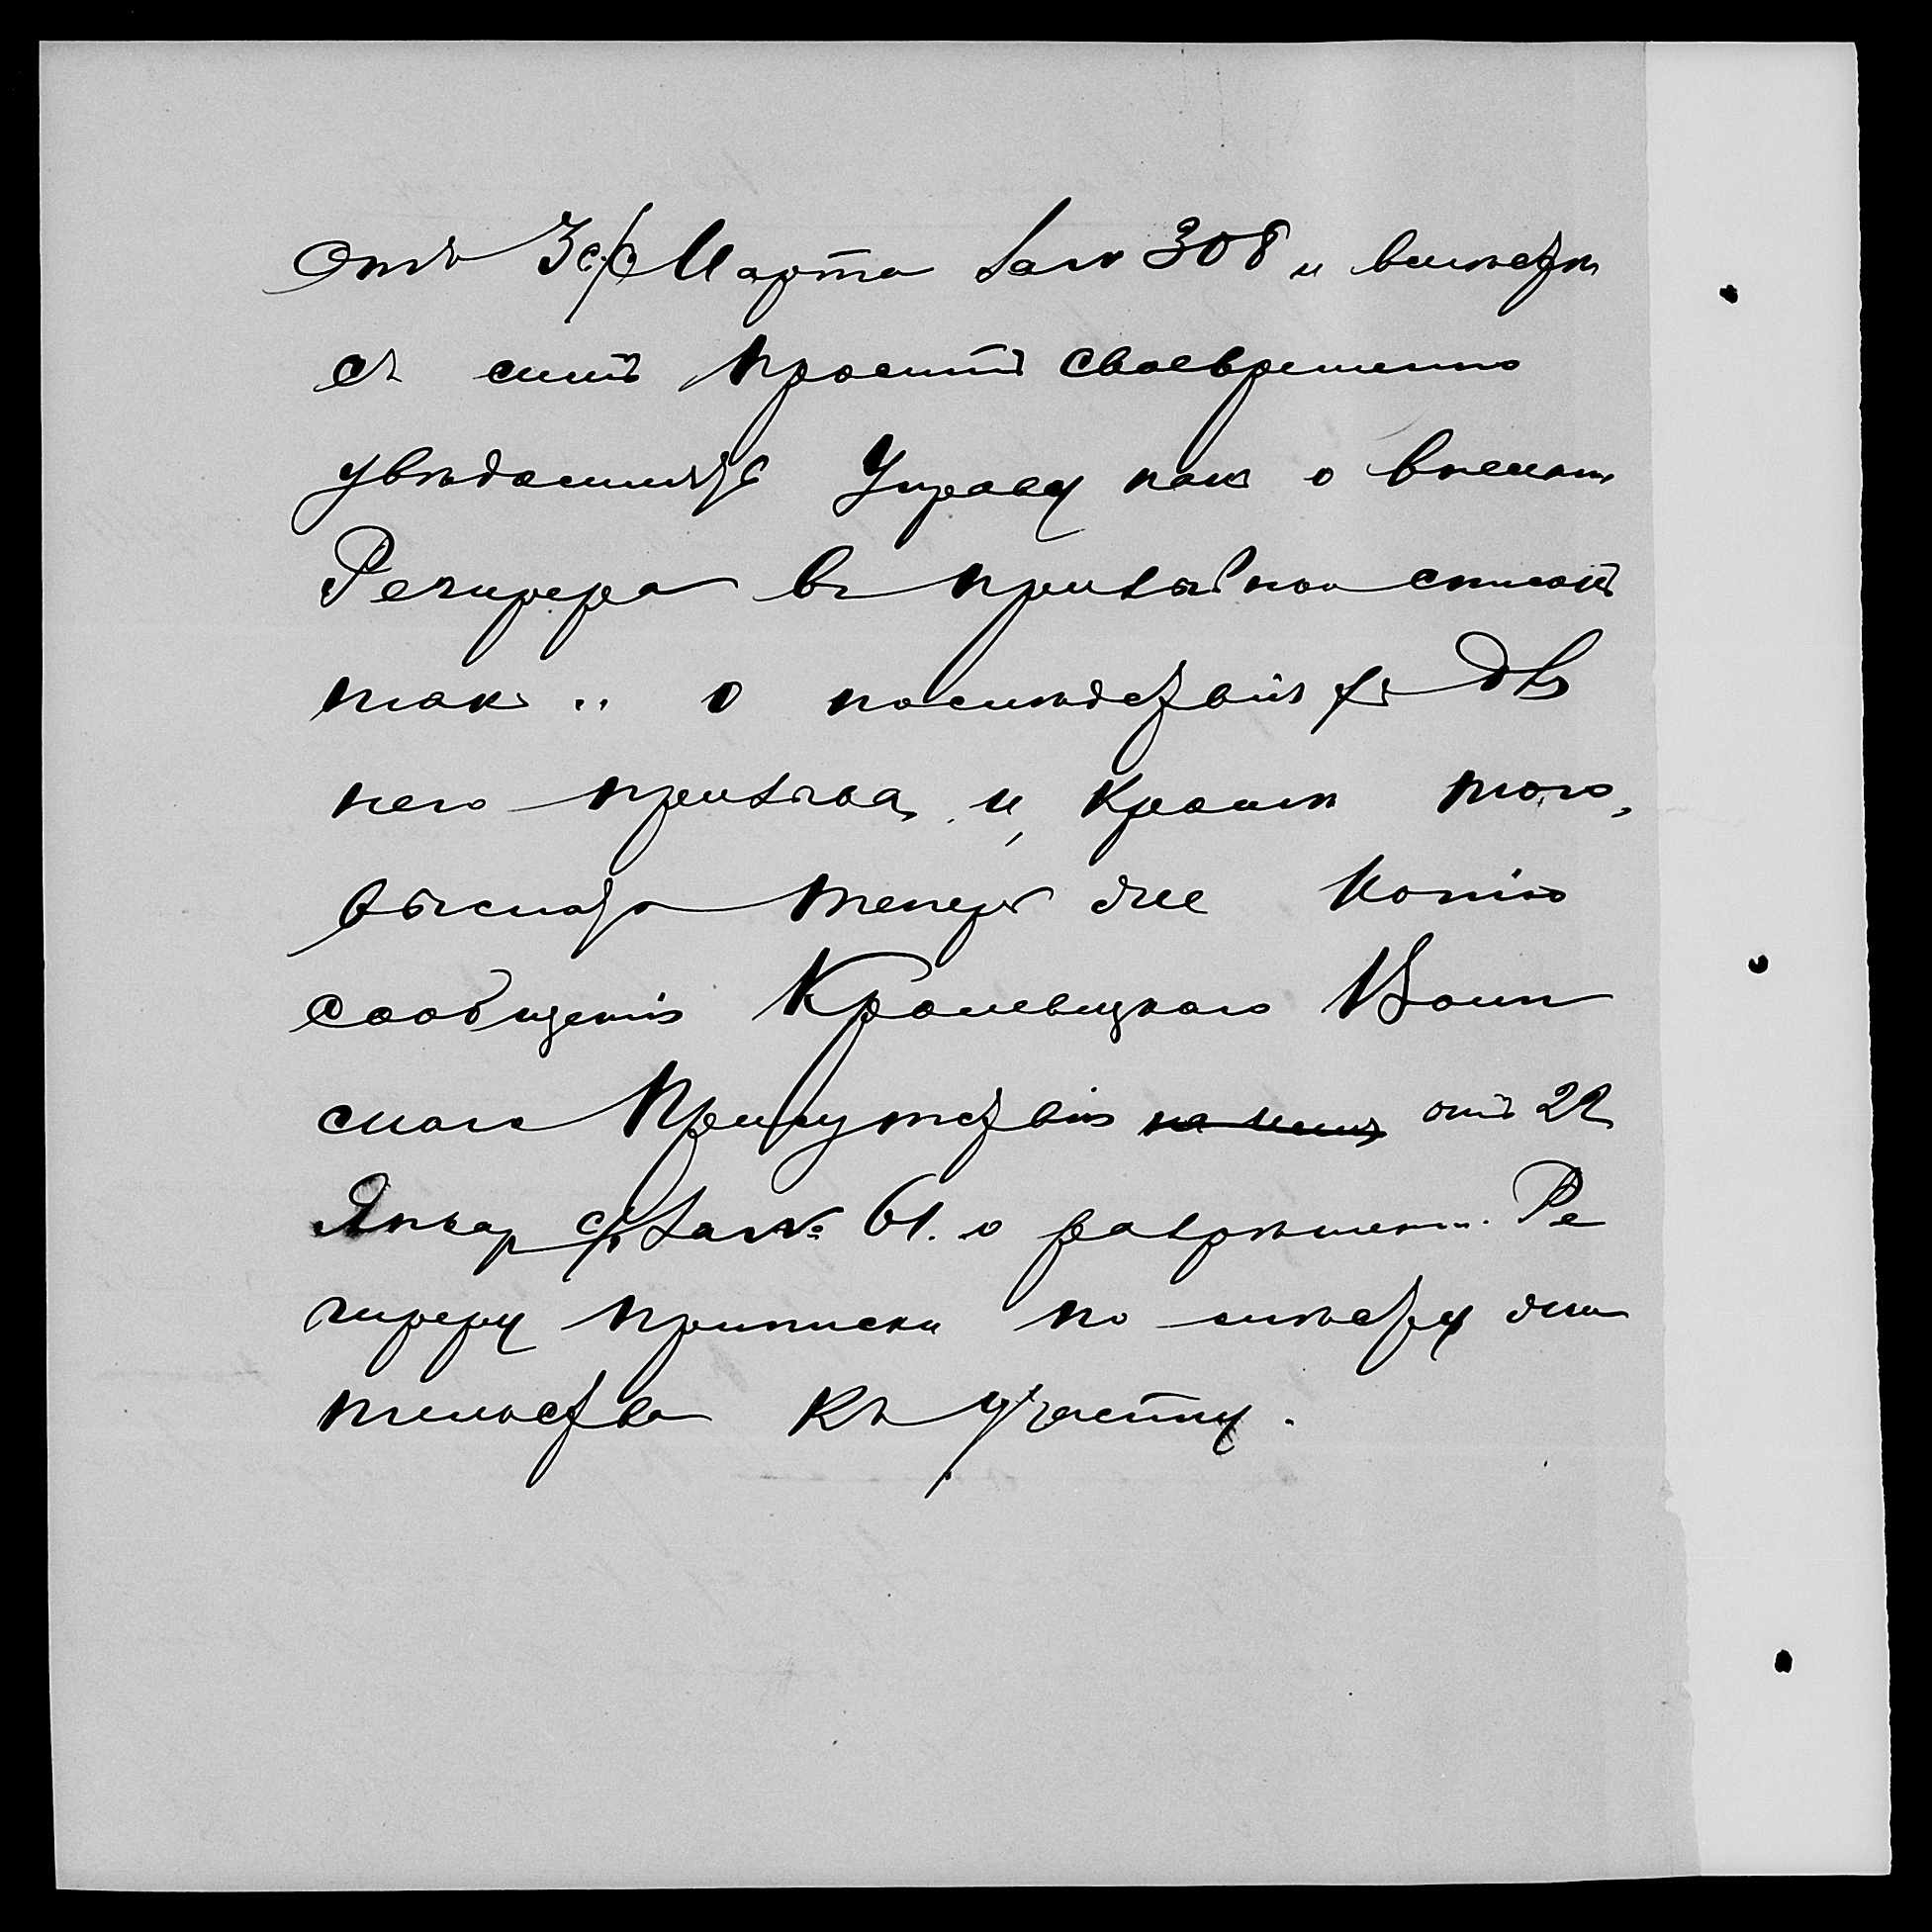 отъ 3 с/ Марта за № 308 и вместѣ
съ симъ проситъ своевременно
увѣдомить Управу какъ о внесен
Речирера въ призывной списокъ
такъ и о послѣдствіяхъ для
него призыва, и, кромѣ того,
выслать теперь же копію
сообщенія Кролевецкаго Воин
скаго Присутствія отъ 22
Января с/г за № 61. о разрѣшеніи Ре
чиреру приписки по мѣсту жи
тельства къ участку.